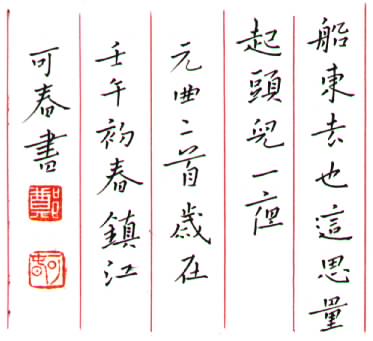 船東去也這思量
起頭兒一夜
元曲二首歲在
壬午初春鎮江
可春書